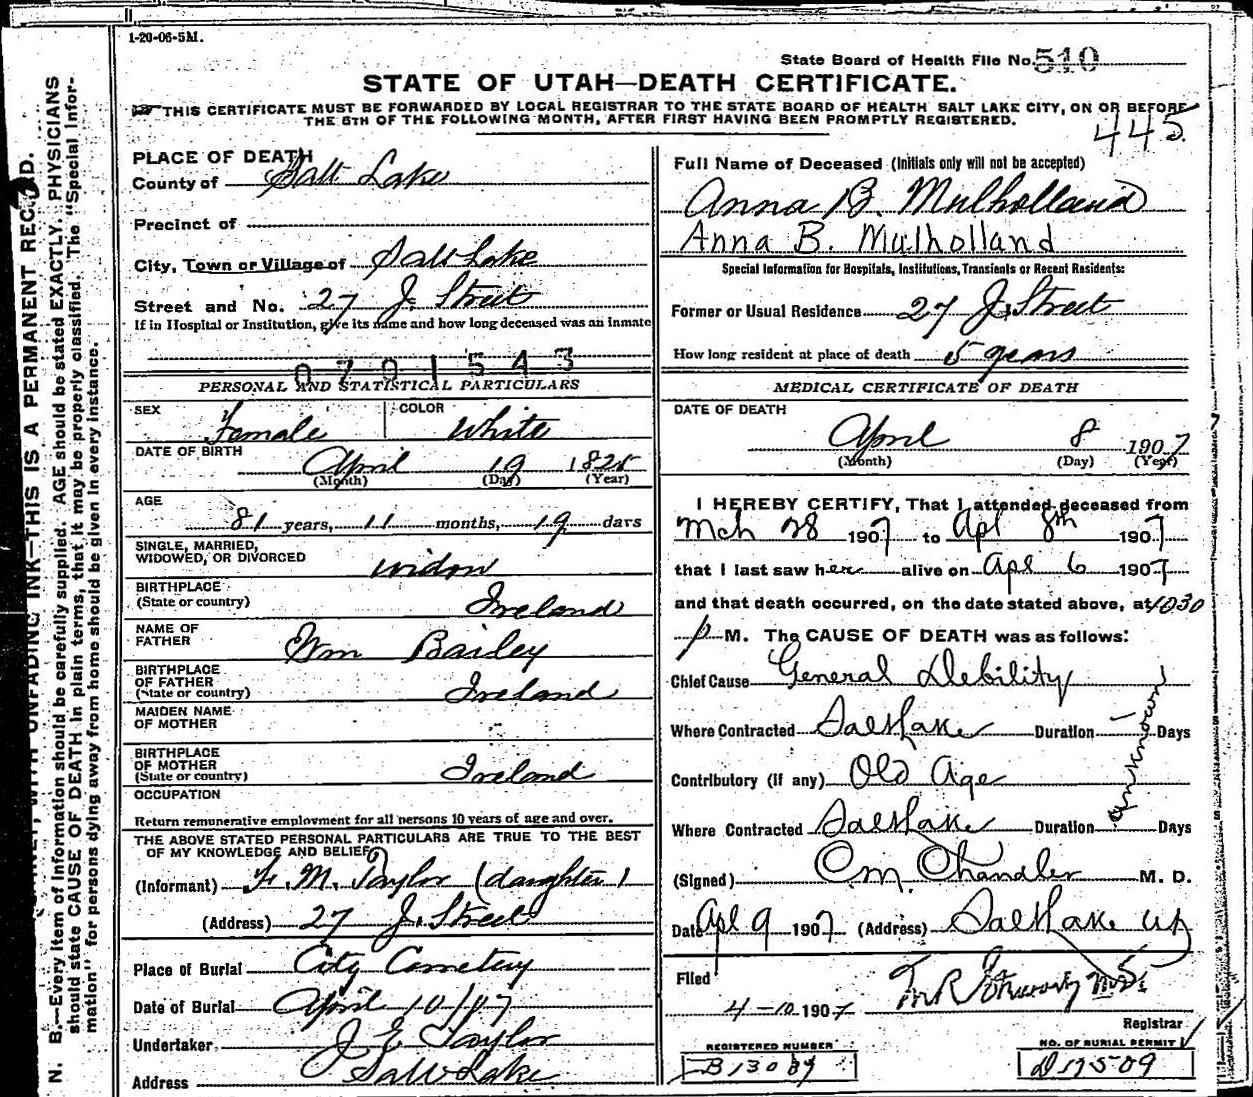 1-20-06-5M.
State Board of Health File No. 510
STATE OF UTAH—DEATH CERTIFICATE.
THIS CERTIFICATE MUST BE FORWARDED BY LOCAL REGISTRAR TO THE STATE BOARD OF HEALTH SALT LAKE CITY, ON OR BEFORE
THE 5TH OF THE FOLLOWING MONTH, AFTER FIRST HAVING BEEN PROMPTLY REGISTERED.
445
N. B.—Every item of information should be carefully supplied. AGE should be stated EXACTLY. PHYSICIANS
should state CAUSE OF DEATH in plain terms, that it may be properly classified. The "Special Infor-
mation" for persons dying away from home should be given in every instance.
WITH UNFADING INK—THIS IS A PERMANENT RECORD.
PLACE OF DEATH
County of Salt Lake
Precinct of
City, Town or Village of Salt Lake
Street and No. 27 J. Street
If in Hospital or Institution, give its name and how long deceased was an inmate
0701543
PERSONAL AND STATISTICAL PARTICULARS
SEX Female COLOR White
DATE OF BIRTH April 19 1825
(Month) (Day) (Year)
AGE
81 years, 11 months, 19 days
SINGLE, MARRIED,
WIDOWED, OR DIVORCED widow
BIRTHPLACE
(State or country) Ireland
NAME OF
FATHER Wm Bailey
BIRTHPLACE
OF FATHER
(State or country) Ireland
MAIDEN NAME
OF MOTHER
BIRTHPLACE
OF MOTHER
(State or country) Ireland
OCCUPATION
Return remunerative employment for all persons 10 years of age and over.
THE ABOVE STATED PERSONAL PARTICULARS ARE TRUE TO THE BEST
OF MY KNOWLEDGE AND BELIEF
(Informant) F. M. Taylor (daughter)
(Address) 27 J. Street
Place of Burial City Cemetery
Date of Burial April 10/07
Undertaker J E Taylor
Address Salt Lake
Full Name of Deceased (Initials only will not be accepted)
Anna B. Mulholland
Anna B. Mulholland
Special Information for Hospitals, Institutions, Transients or Recent Residents:
Former or Usual Residence 27 J. Street
How long resident at place of death 5 years
MEDICAL CERTIFICATE OF DEATH
DATE OF DEATH
April 8 1907
(Month) (Day) (Year)
I HEREBY CERTIFY, That I attended deceased from
Mch 28 1907 to Apl 8th 1907
that I last saw her alive on Apl 6 1907
and that death occurred, on the date stated above, at 1030
p M. The CAUSE OF DEATH was as follows:
Chief Cause General Debility
Where Contracted Salt Lake Duration Days
unknown
Contributory (if any) Old Age
Where Contracted Salt Lake Duration Days
(Signed) C. M. Chandler M. D.
Date Apl 9 1907 (Address) Salt Lake Ut
Filed
4-10 1907
Registrar
REGISTERED NUMBER
B 13089
NO. OF BURIAL PERMIT
D 17509